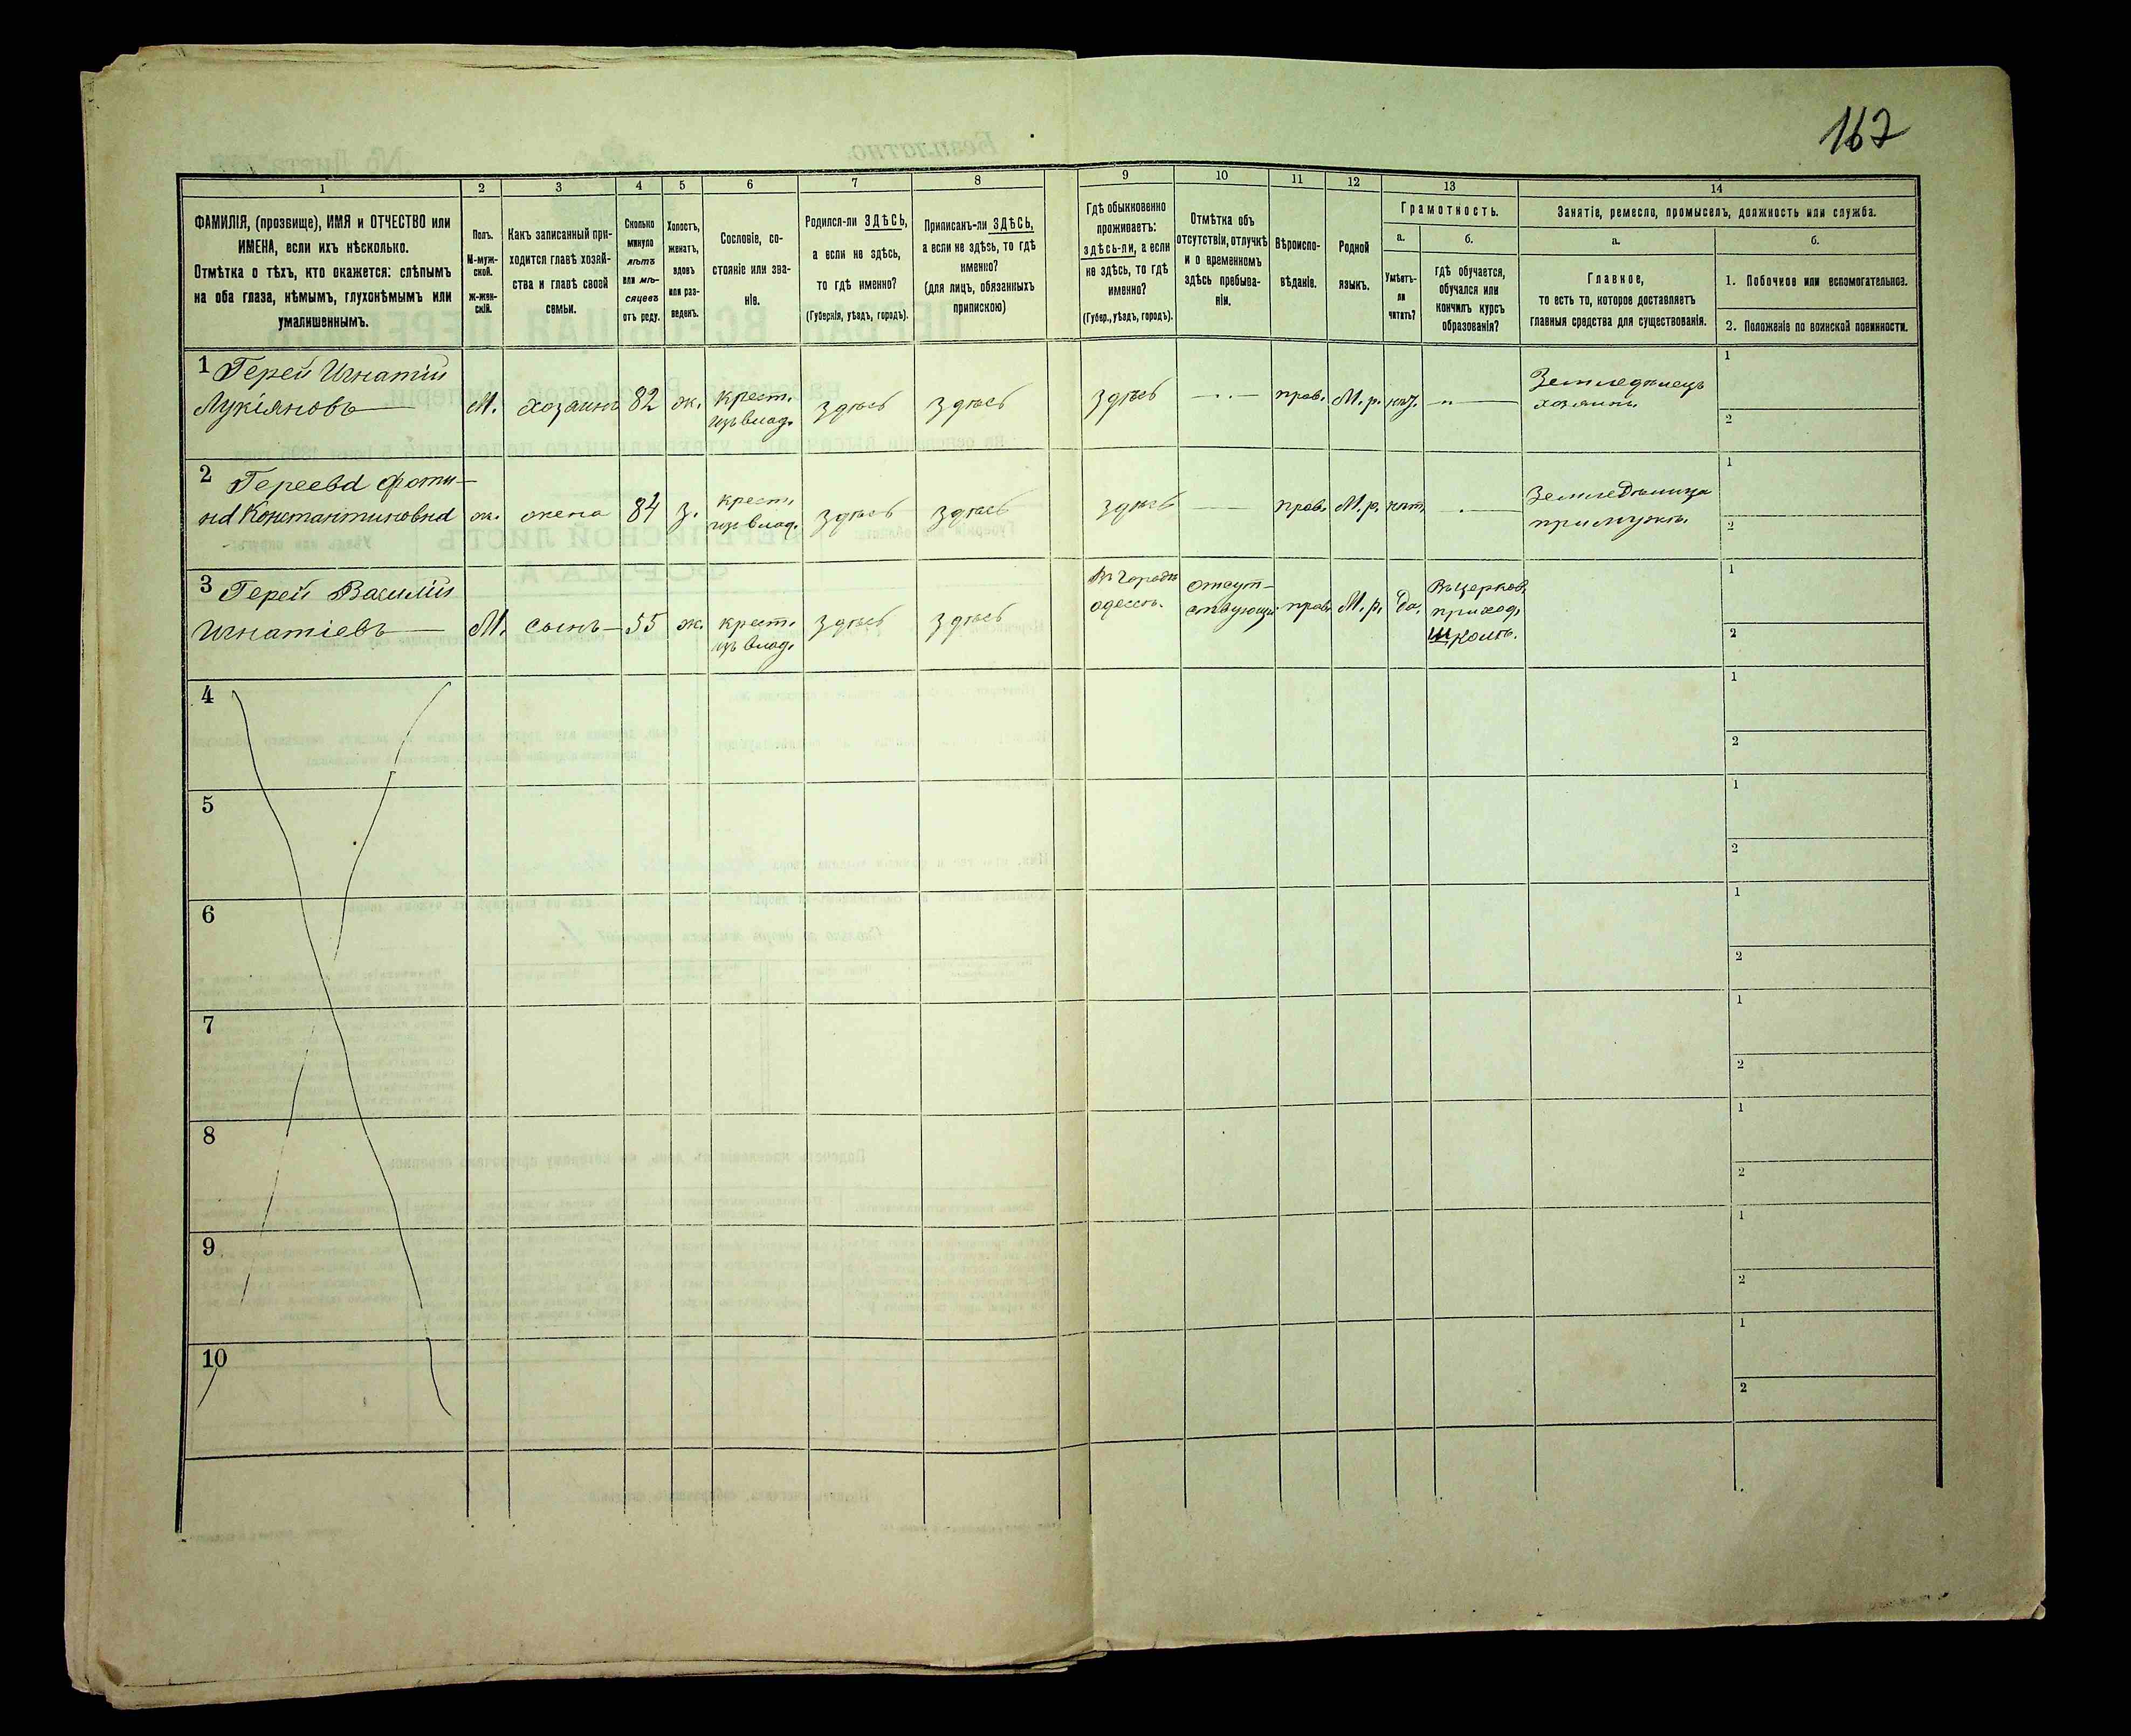 167
1
2
3
4
5
6
7
8
9
10
11
12
13
14
ФАМИЛІЯ, (прозбище), ИМЯ и ОТЧЕСТВО или
ИМЕНА, если ихъ нѣсколько.
Отмѣтка о тѣхъ, кто окажется: слѣпымъ
на оба глаза, нѣмымъ, глухонѣмымъ или
умалишеннымъ.
Полъ.
М-муж-
ской.
ж-жен-
скій.
Какъ записанный при-
ходится главѣ хозяй-
ства и главѣ своей
семьи.
Сколько
минуло
лѣтъ
или мѣ-
сяцевъ
отъ роду.
Холостъ,
женатъ,
вдовъ
или раз-
веденъ.
Сословіе, со-
стояніе или зва-
ніе.
Родился-ли ЗДѢСЬ,
а если не здѣсь,
то гдѣ именно?
(Губернія, уѣздъ, городъ).
Приписанъ-ли ЗДѢСЬ,
а если не здѣсь, то гдѣ
именно?
(для лицъ, обязанныхъ
припискою)
Гдѣ обыкновенно
проживаетъ:
здѣсь-ли, а если
не здѣсь, то гдѣ
именно?
(Губер., уѣздъ, городъ).
Отмѣтка объ
отсутствіи, отлучкѣ
и о временномъ
здѣсь пребыва-
ніи.
Вѣроиспо-
вѣданіе.
Родной
языкъ.
Грамотность.
а.
Умѣетъ-
ли
читать?
б.
гдѣ обучается,
обучался или
кончилъ курсъ
образованія?
Занятіе, ремесло, промыселъ, должность или служба.
а.
Главное,
то есть то, которое доставляетъ
главныя средства для существованія.
б.
1. Побочное или вспомогательное.
2. Положеніе по воинской повинности.
1 Герей Игнатій
Лукіяновъ
М.
хозаинъ
82
ж.
крест.
изъ влад.
здѣсь
здѣсь
здѣсь
прав.
М.р.
Земледѣлецъ
хозяинъ.
1
2
2 Гереева Фоти-
на Константиновна
ж.
жена
84
з.
крест.
изъ влад.
здѣсь
здѣсь
здѣсь
прав.
М.р.
Земледѣлица
при мужѣ.
1
2
3 Герей Василій
Игнатіевъ
М.
сынъ
55
ж.
крест.
изъ влад.
здѣсь
здѣсь
Въ городѣ
одессѣ.
отсут-
ствующій
прав.
М.р.
да.
Въ церков.
приход.
школѣ.
1
2
4
1
2
5
1
2
6
1
2
7
1
2
8
1
2
9
1
2
10
1
2